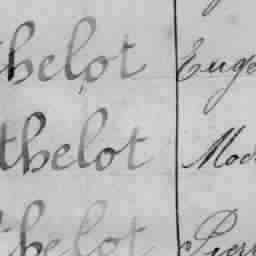 thelot Euge
thelot Mod
thelot Pierr